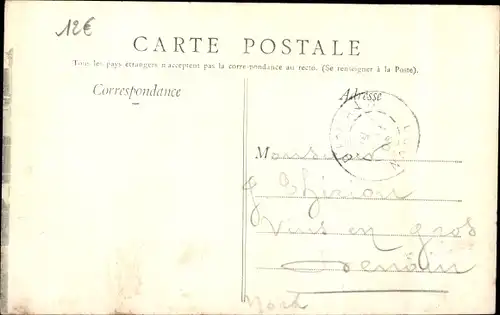 12€
CARTE POSTALE
Tous les pays étrangers n'acceptent pas la correspondance au recto. (Se renseigner à la Poste).
Correspondance
Adresse
Monsieur
J. Thirion
Vins en gros
Denain
Nord